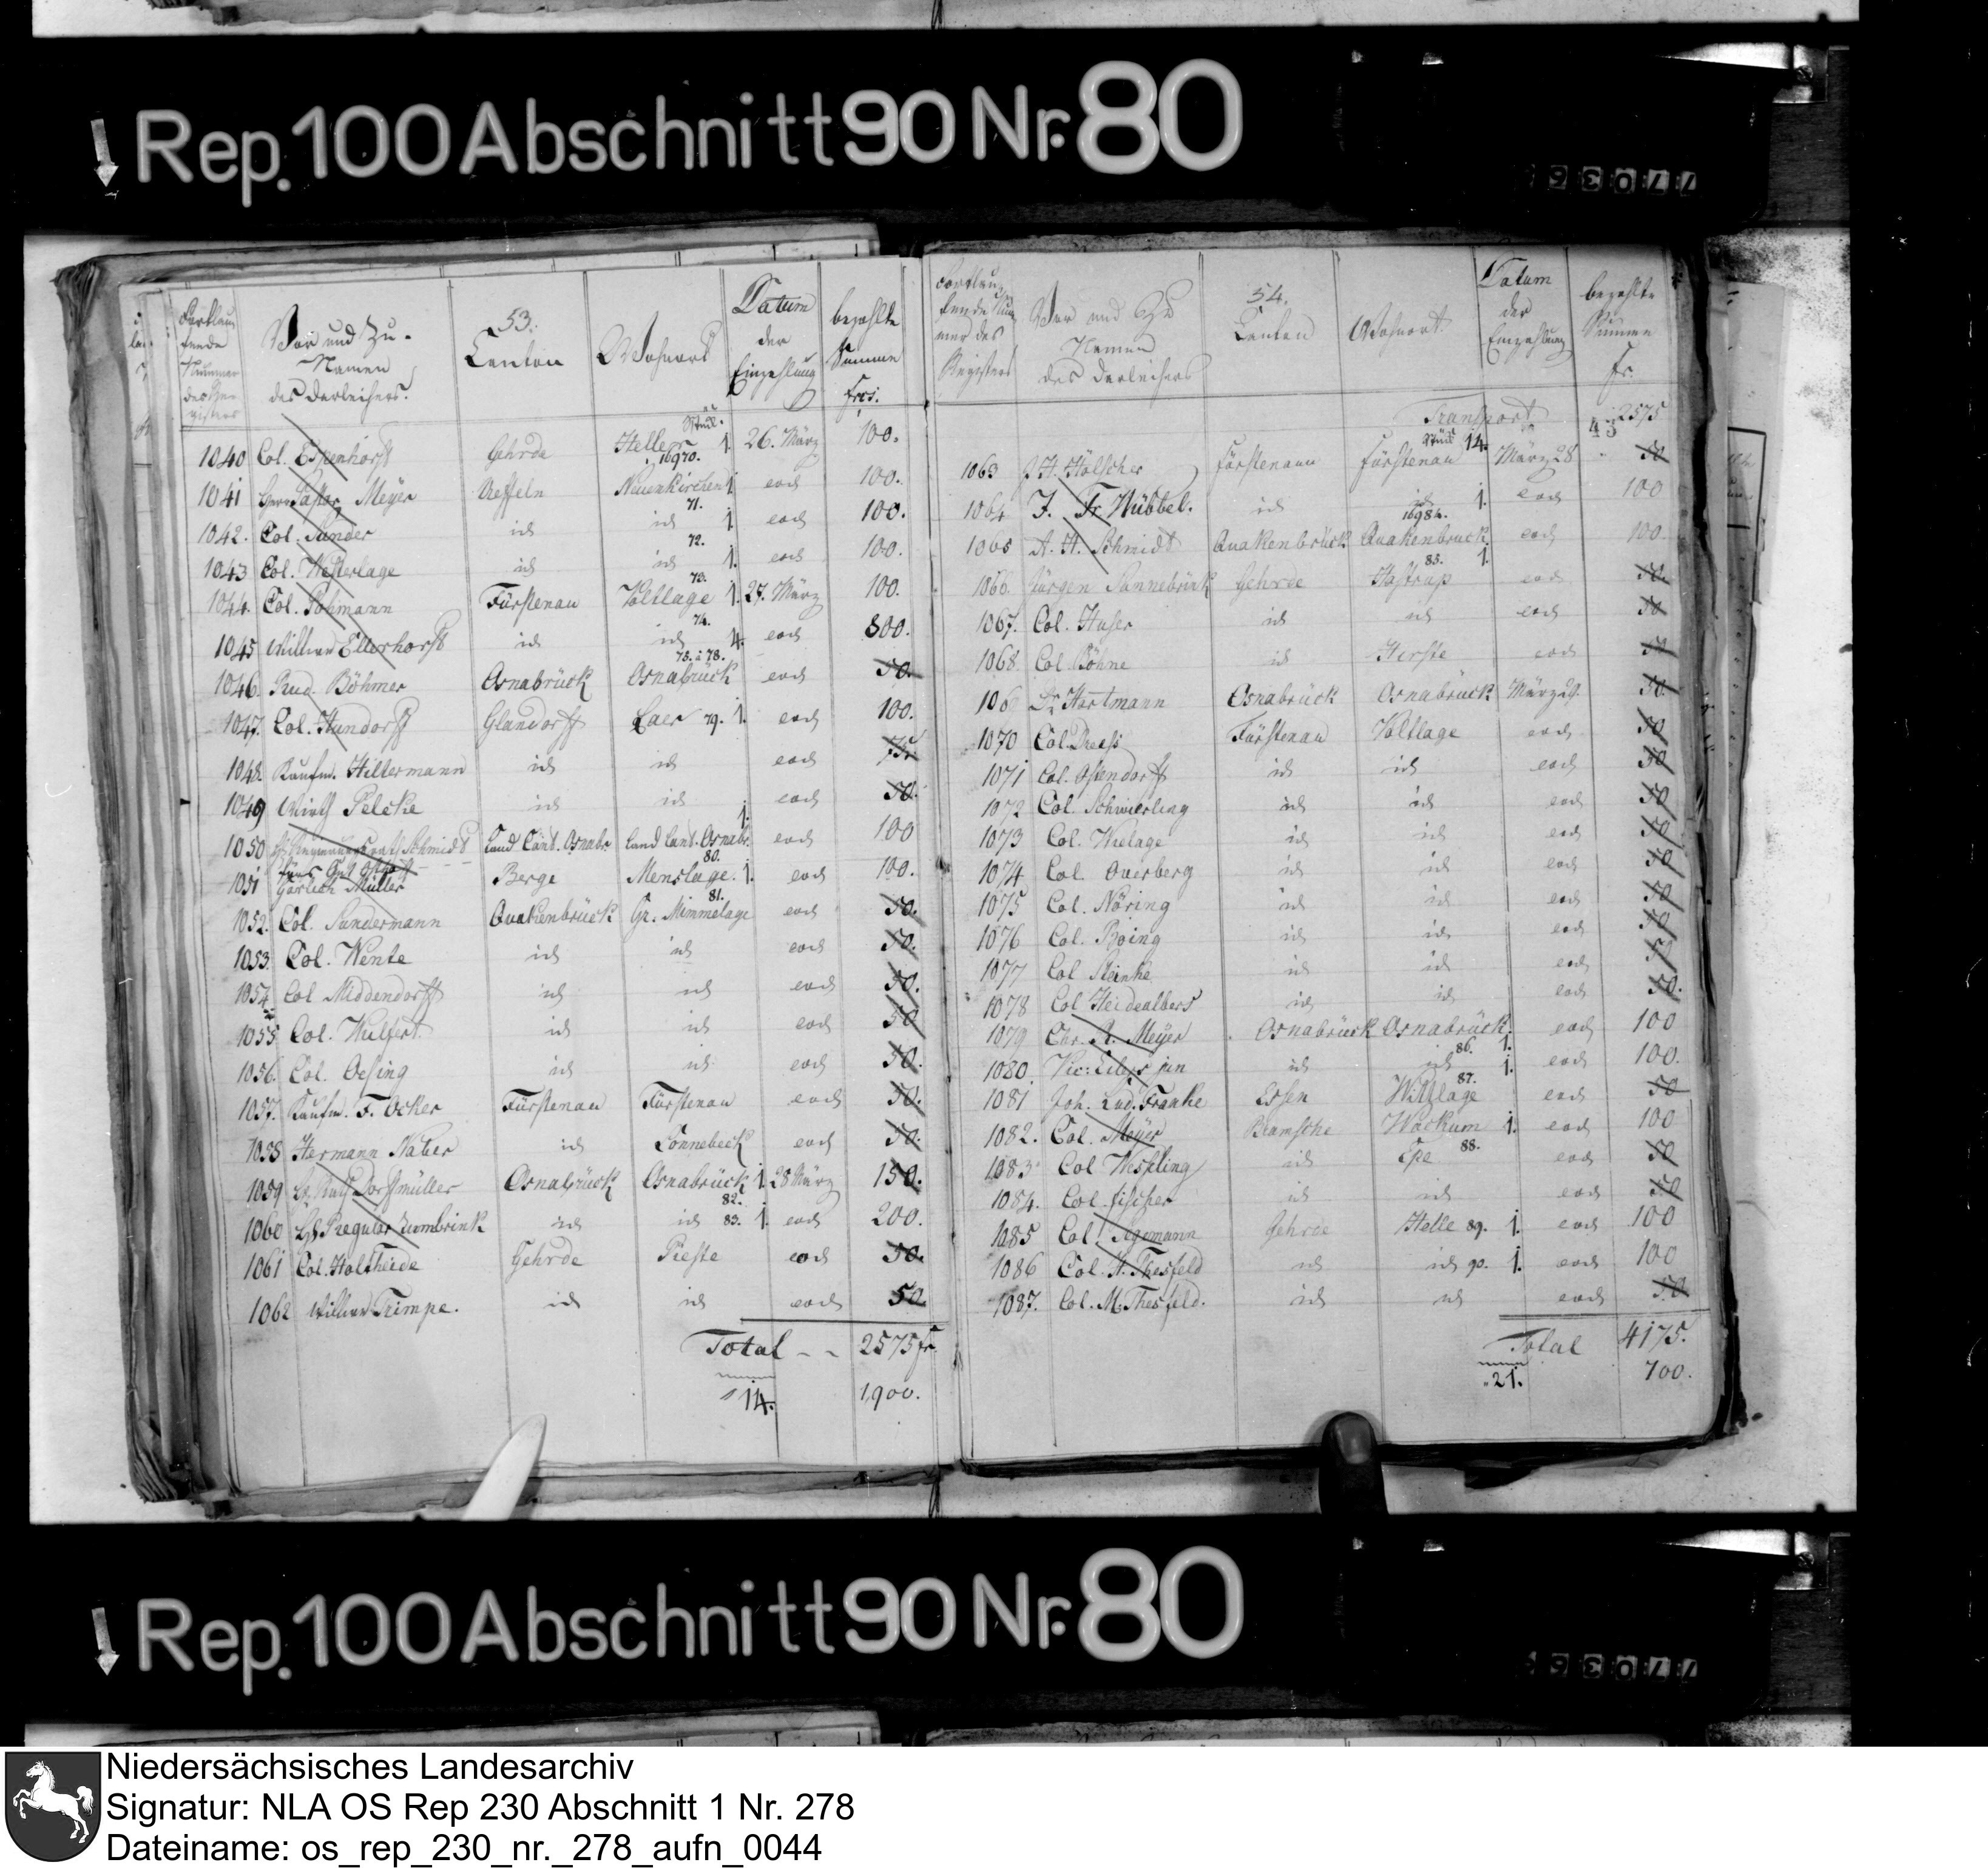 Rep. 100 Abschnitt 90 Nr. 80
53.
Fortlaufende Nummer des Registers | Vor und Zu-Namen des Darleihers. | Canton | Wohnort | Datum der Einzahlung | bezahlte Summe frcs.
1040 Col. Espenhorst Gehrde Helle 1. 26. März 100.
16970.
1041 Herr Pastor Meyer Ueffeln Neuenkirchen 1. eod 100.
71.
1042. Col. Sander id id 1. eod 100.
72.
1043 Col. Westerlage id id 1. eod 100.
73.
1044. Col. Pohmann Fürstenau Voltlage 1. 27. März 100.
74.
1045 Wittwe Ellerhorst id id 4. eod 800.
75. a 78.
1046. Rud. Böhmer Osnabrück Osnabrück eod 50.
1047. Col. Hundorf Glandorff Laer 79. 1. eod 100.
1048 Kaufm. Hiltermann id id eod 75.
1049 Wirth Pelcke id id eod 50.
1050 Schmidt Land Cant. Osnabr. Land Cant. Osnabr. 1. eod 100
80.
1051 Görlich Müller Berge Menslage. 1. eod 100.
81.
1052. Col. Sundermann Quakenbrück Gr. Mimmelage eod 50.
1053. Col. Wente id id eod 50.
1054. Col Middendorff id id eod 50.
1055 Col. Wulfert id id eod 50
1056. Col. Oesing id id eod 50.
1057. Kaufm. F. Ocker Fürstenau Fürstenau eod 50.
1058 Hermann Naber id Lonnebeck eod 50.
1059 Dorstmüller Osnabrück Osnabrück 1. 28 März 150.
82.
1060 Zumbrink id id 83. 1. eod 200.
1061 Col. Holtheide Gehrde Rieste eod 50.
1062 Wittwe Trimpe. id id eod 50
Total - - 2575 fr.
14. 1,900.
54.
Fortlaufende Nummer des Registers | Vor und Zu Namen des Darleihers | Canton | Wohnort | Datum der Einzahlung | bezahlte Summe fr.
Transport 2575
45
1063 J. H. Hölscher Fürstenau Fürstenau 14. März 28 50
1064 J. Fr. Wübbel. id id 1. eod 100
16984.
1065 A. H. Schmidt Quakenbrück Quakenbrück. 1. eod 100.
85.
1066. Jürgen Sannebrink Gehrde Hastrup eod 50.
1067. Col. Huser id id eod 50
1068. Col. Böhne id Herste eod 50
106 Dr. Hartmann Osnabrück Osnabrück März 29. 50.
1070 Col. Drees Fürstenau Voltlage eod 50
1071 Col. Ostendorff id id eod 50
1072 Col. Schwierling id id eod 50
1073 Col. Wielage id id eod 50
1074 Col. Overberg id id eod 50
1075 Col. Nöring id id eod 50
1076 Col. Boing id id eod 50
1077 Col Steinke id id eod 50
1078 Col Heidealbers id id eod 50.
1079 Chr. A. Meyer Osnabrück Osnabrück. 1. eod 100
86.
1080. Vic: Eilers jun id id 1. eod 100.
87.
1081 Joh. Lud. Franke Essen Wittlage eod 50
1082. Col. Meyer Bramsche Wackum 1. eod 100
88.
1083 Col Westling id Epe eod 50
1084. Col. Fischer id id eod 50
1085 Col. Gehrde Helle 89. 1. eod 100
1086 Col. H. Thesfeld id id 90. 1. eod 100
1087. Col. M. Thesfeld. id id eod 50.
Total 4175.
21. 700.
Rep. 100 Abschnitt 90 Nr. 80
Niedersächsisches Landesarchiv
Signatur: NLA OS Rep 230 Abschnitt 1 Nr. 278
Dateiname: os_rep_230_nr._278_aufn_0044